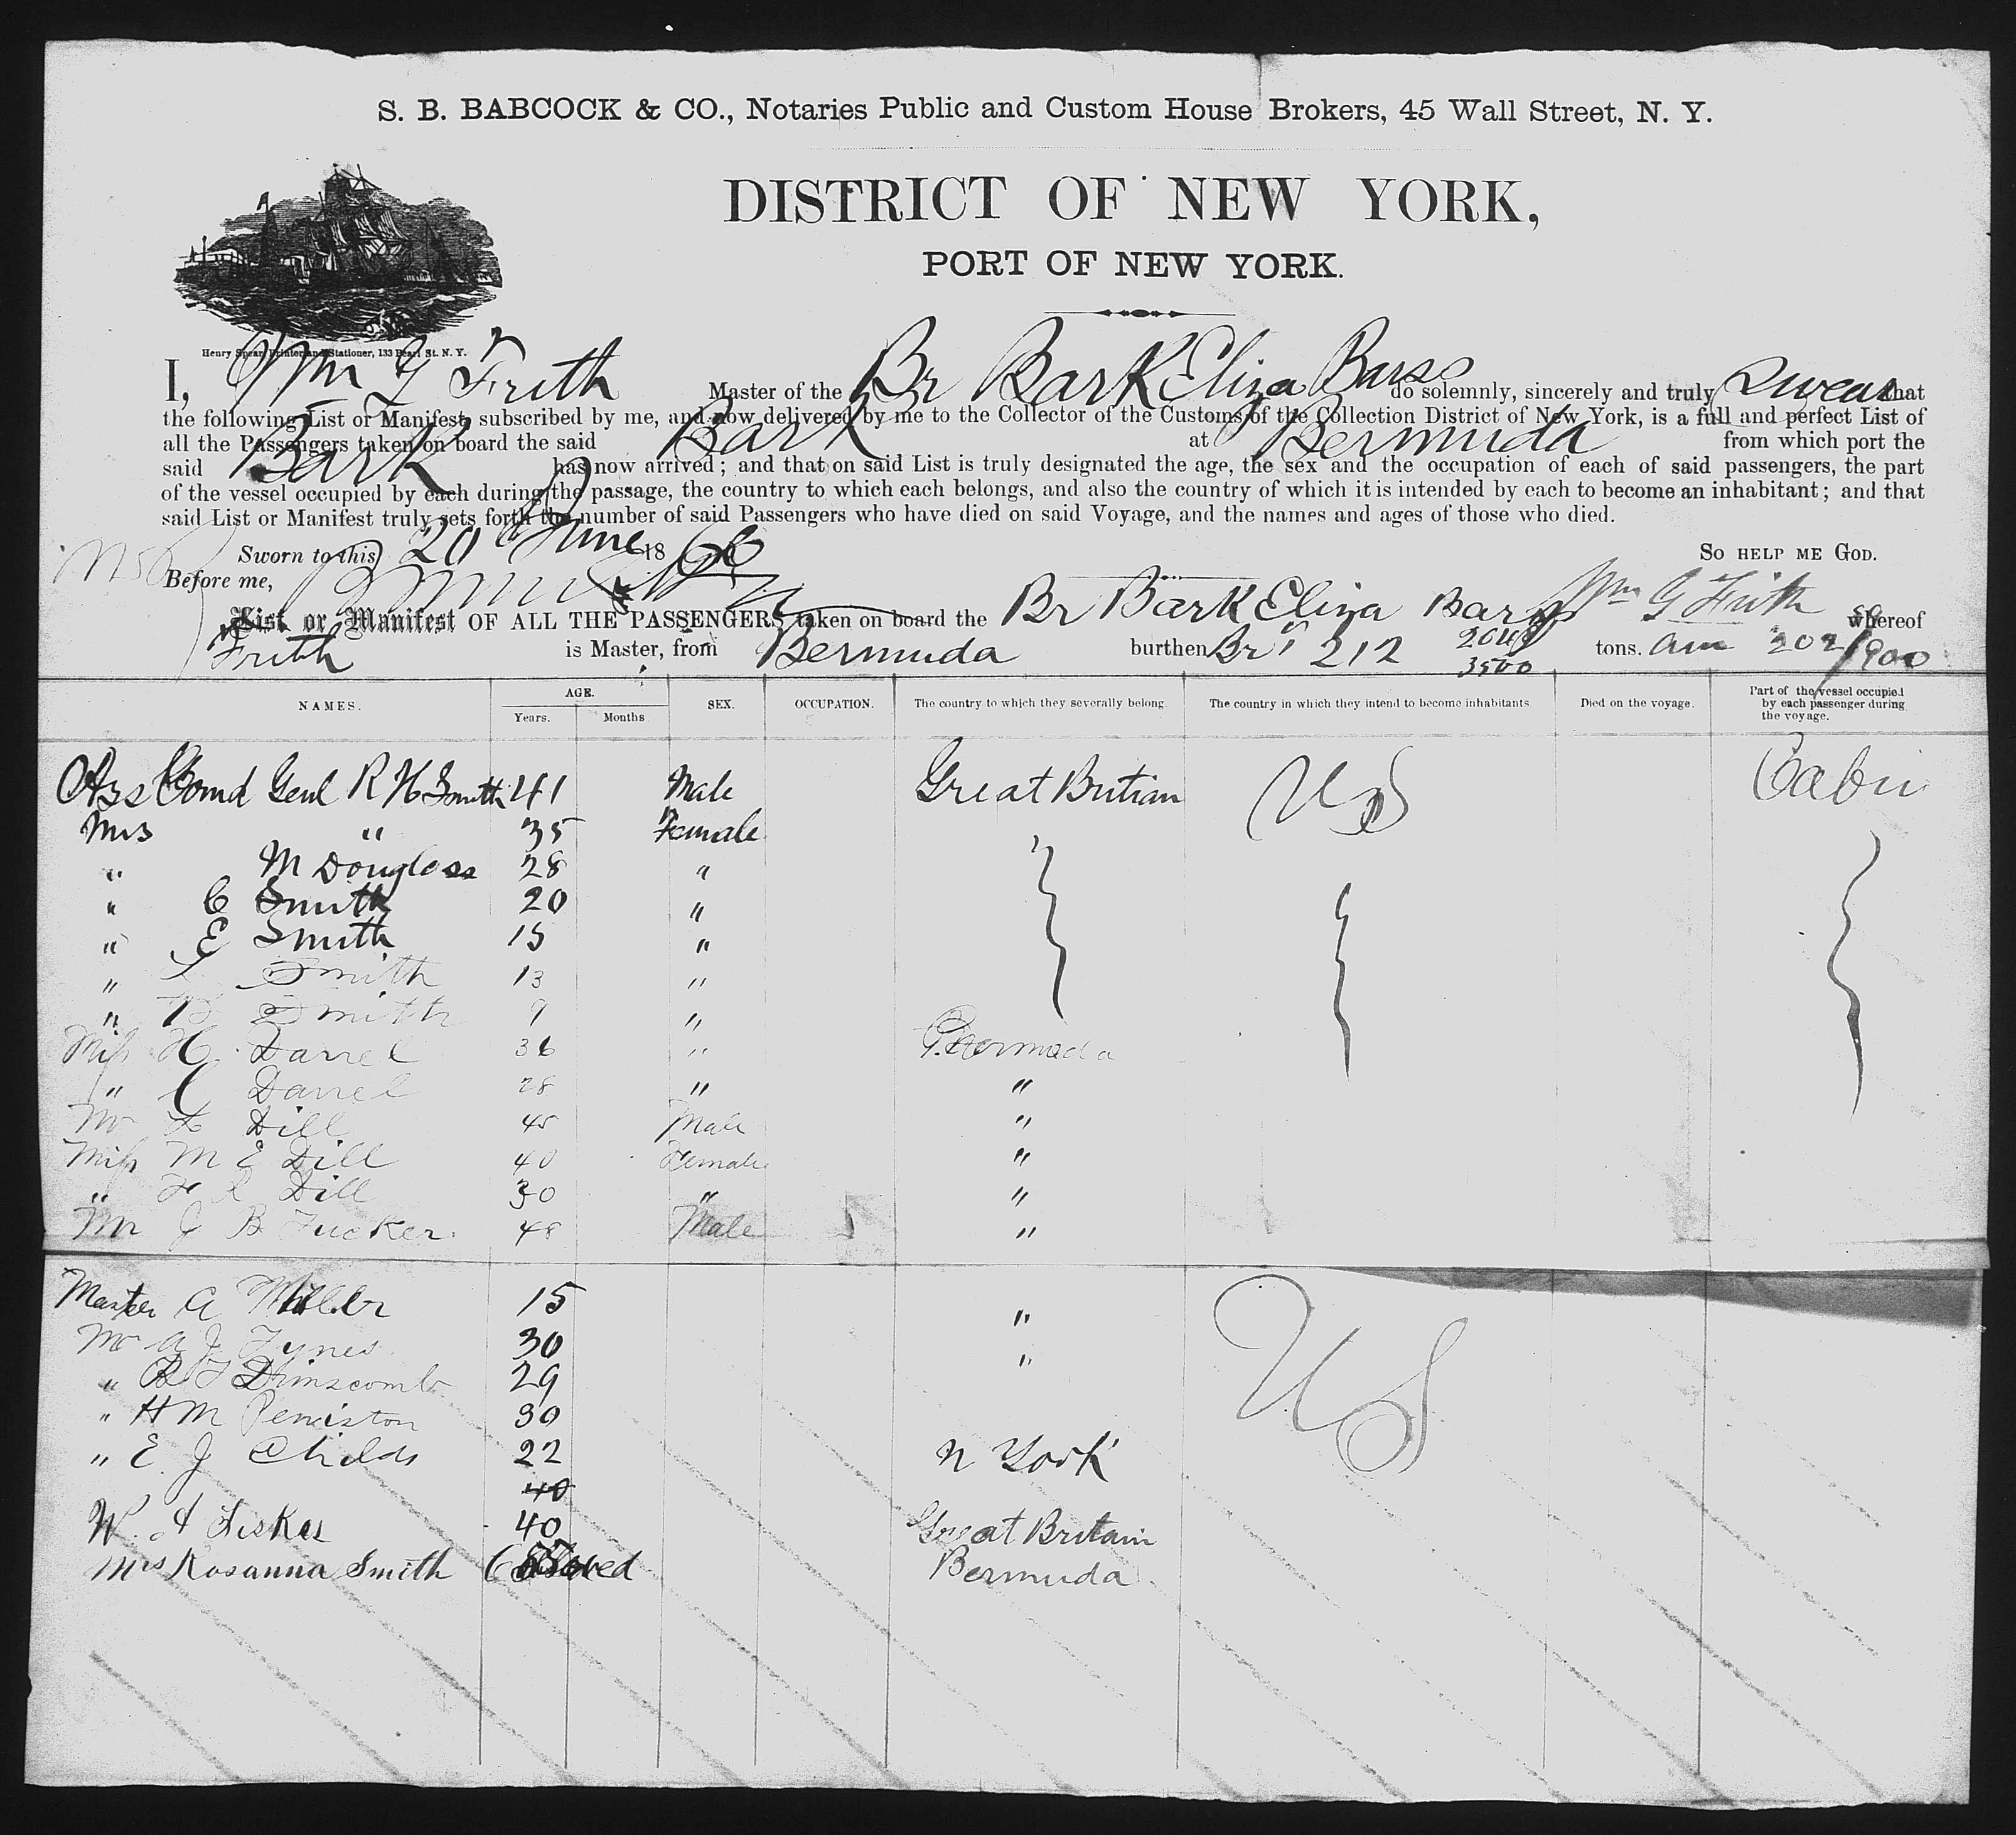 S. B. BABCOCK & CO., Notaries Public and Custom House Brokers, 45 Wall Street, N. Y.
DISTRICT OF NEW YORK,
PORT OF NEW YORK.
Henry Spear, Printer and Stationer, 133 Pearl St. N. Y.
I, Wm G Frith Master of the Br Bark Eliza Barss do solemnly, sincerely and truly Swear that
the following List or Manifest, subscribed by me, and now delivered by me to the Collector of the Customs of the Collection District of New York, is a full and perfect List of
all the Passengers taken on board the said Bark at Bermuda from which port the
said Bark has now arrived; and that on said List is truly designated the age, the sex and the occupation of each of said passengers, the part
of the vessel occupied by each during the passage, the country to which each belongs, and also the country of which it is intended by each to become an inhabitant; and that
said List or Manifest truly sets forth the number of said Passengers who have died on said Voyage, and the names and ages of those who died.
Sworn to this 20 June 1866 SO HELP ME GOD.
Before me, Wm G Frith
List or Manifest OF ALL THE PASSENGERS taken on board the Br Bark Eliza Barss whereof
Frith is Master, from Bermuda burthen Br 212 2048/3500 tons. Am 202/900
NAMES. AGE. Years. Months SEX. OCCUPATION. The country to which they severally belong. The country in which they intend to become inhabitants Died on the voyage. Part of the vessel occupied by each passenger during the voyage.
Ass Comd Genl R H Smith 41 Male Great Britian US Cabin
Mrs " 35 Female
" M Douglass 28 "
" C Smith 20 "
" E Smith 15 "
" L Smith 13 "
" B Smith 9 "
Miss H Darrel 36 " Bermuda
" C Darrel 28 " "
Mr Dill 45 Male "
Miss M E Dill 40 Female "
" Dill 30 " "
Mr J B Tucker 48 Male "
Master A Miller 15 " US
Mr A J Tynes 30 "
" B T Dhinscomb 29
" H M Peniston 30
" E. J Childs 22 N York
40
W. A Fisker 40 Great Britain
Mrs Rosanna Smith Bermuda